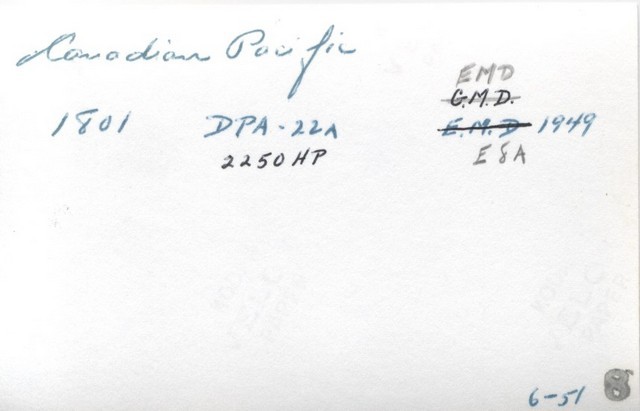 Canadian Pacific
EMD
G.M.D.
1801 DPA-22A E.M.D 1949
2250 HP E8A
6-51 8